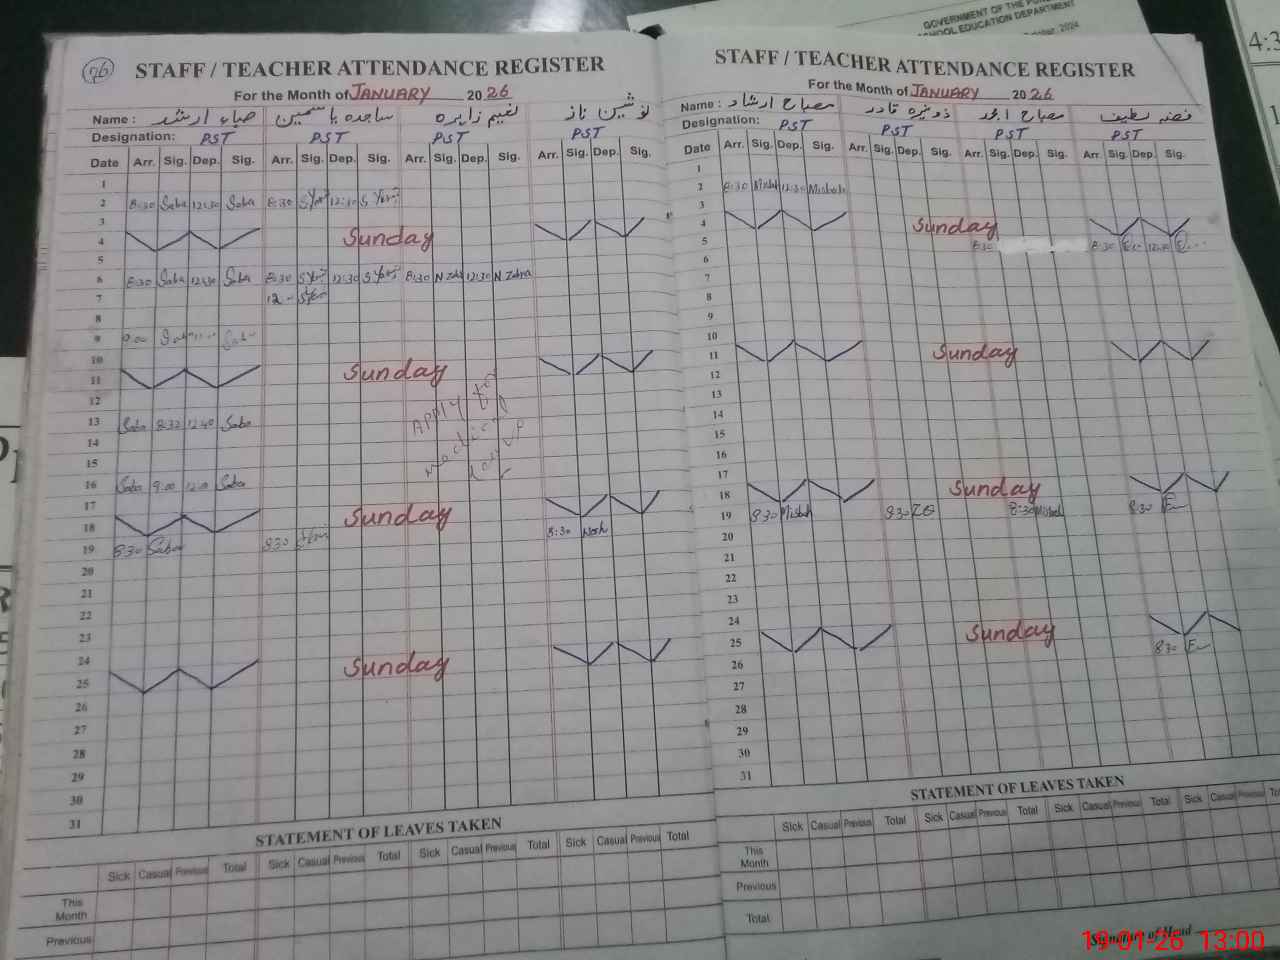 GOVERNMENT OF THE
SCHOOL EDUCATION DEPARTMENT
2024
4:3
76
STAFF / TEACHER ATTENDANCE REGISTER
For the Month of JANUARY 2026
Name : صباء ارشد ساجدہ یاسمین نغیم زاہرہ نوشین ناز
Designation: PST PST PST PST
Date Arr. Sig. Dep. Sig. Arr. Sig. Dep. Sig. Arr. Sig. Dep. Sig. Arr. Sig. Dep. Sig.
1
2 8:30 Saba 12:30 Saba 8:30 12:30
3
4 Sunday
5
6 8:30 Saba 12:30 Saba 8:30 12:30 8:30 N Zahra 12:30 N Zahra
7
8
9 9:00
10
11 Sunday
12
13 Saba 8:32 12:40 Saba
APPLY for
medical
14
15
16 Saba 9:00 Saba
17
18 Sunday
19 8:30 Saba 8:30 8:30 Nosh
20
21
22
23
24
25 Sunday
26
27
28
29
30
31
STATEMENT OF LEAVES TAKEN
Sick Casual Previous Total Sick Casual Previous Total Sick Casual Previous Total Sick Casual Previous Total
This Month
Previous
STAFF / TEACHER ATTENDANCE REGISTER
For the Month of JANUARY 2026
Name : مصباح ارشاد زونیزہ قادر مصباح امجد فضہ لطیف
Designation: PST PST PST PST
Date Arr. Sig. Dep. Sig. Arr. Sig. Dep. Sig. Arr. Sig. Dep. Sig. Arr. Sig. Dep. Sig.
1
2 8:30 Misbah 12:30 Misbah
3
4 Sunday
5 8:30 8:30
6
7
8
9
10
11 Sunday
12
13
14
15
16
17
18 Sunday
19 8:30 Misbah 8:30 ZQ 8:30 Misbah 8:30
20
21
22
23
24
25 Sunday
26 8:30
27
28
29
30
31
STATEMENT OF LEAVES TAKEN
Sick Casual Previous Total Sick Casual Previous Total Sick Casual Previous Total Sick Casual Previous
This Month
Previous
Total
Signature of Head
19-01-26 13:00